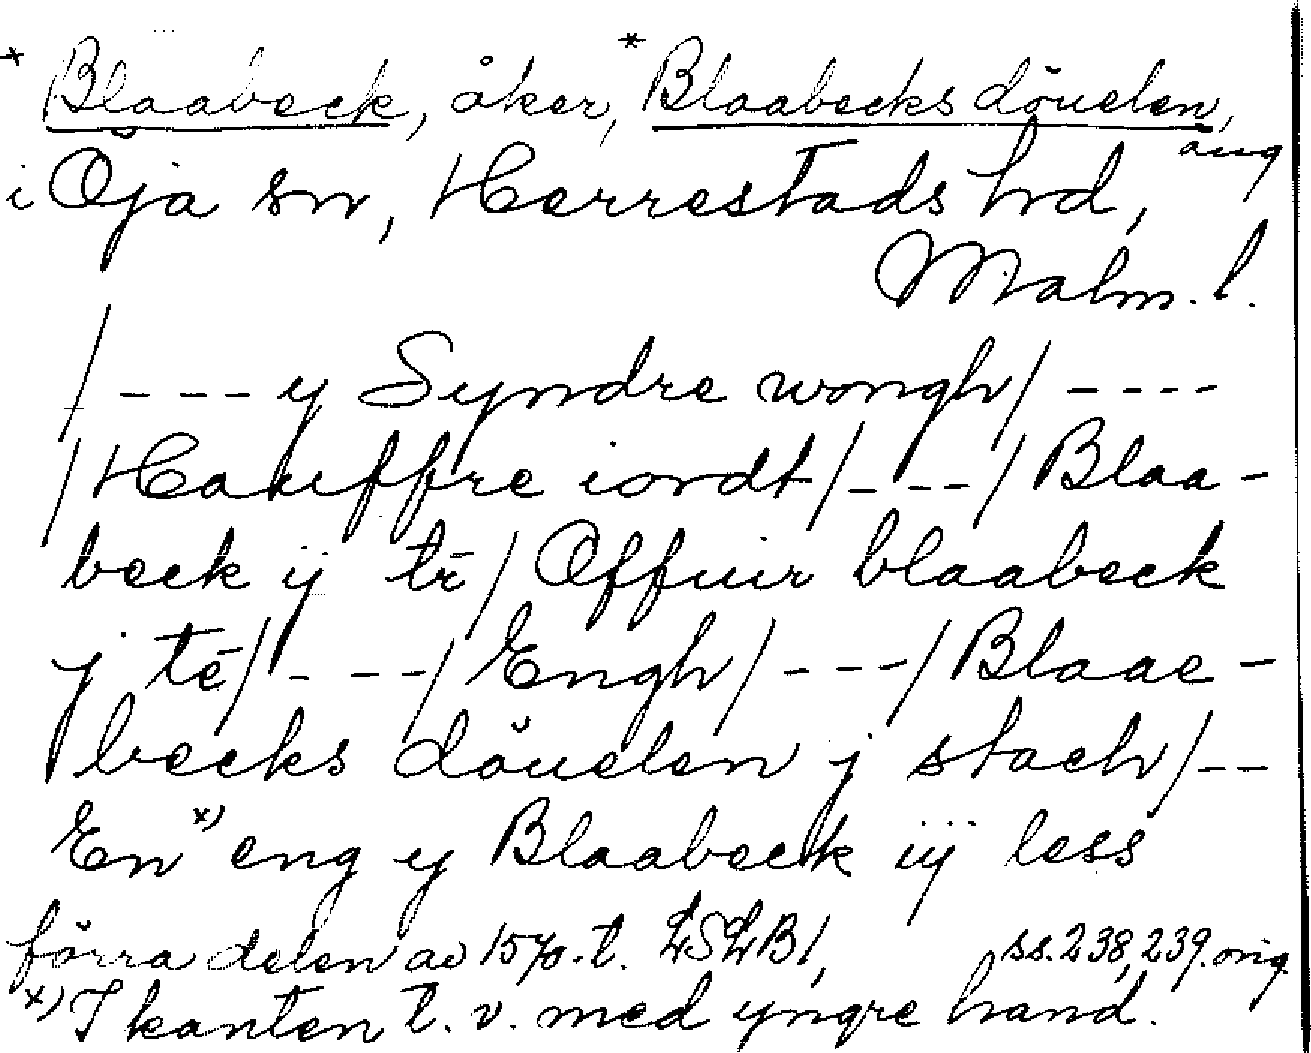 * Blaabeck, åker, * Blaabecks döuelen, äng
i Öja sn, Herrestads hd,
Malm. l.
/ - - - y Syndre wongh / - - - -
/ Hauffre iordt / - - - - / Blaa-
beck ij tē / Offuir blaabeck
j tē / - - - - / Engh / - - - - / Blaae-
becks döuelen j stach / - -
En x) eng y Blaabeck iij less
förra delen av 1570-t. LSLB1, ss. 238, 239. orig.
x) I kanten t. v. med yngre hand.